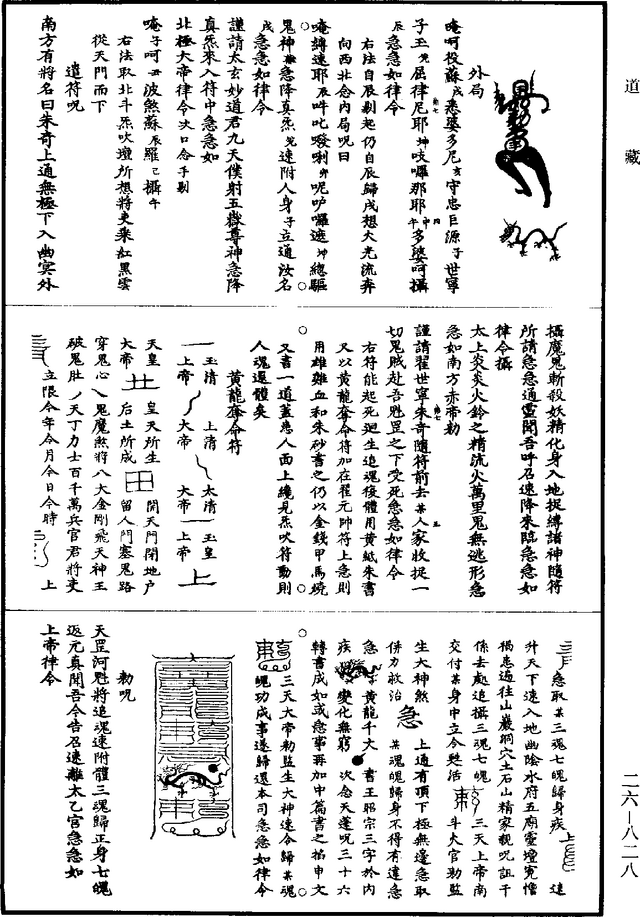 道藏
外局
唵呵投蘇戌悉婆多尼亥守忠巨源子世寧
子玉丑屈律尼耶坤吱囉那耶午多婆呵攝
辰急急如律令
右法自辰剔起仍自辰歸戌想大光流奔
向西北念內局呪曰
唵縛速耶辰吽叱發喇卯呢吖囉遮坤總驅
鬼神急降真炁兌速附人身子立通汝名
戌急急如律令
謹請太玄妙道君九天僕射五嶽尊神急降
真炁來入符中急急如
北極大帝律令次口念手剔
唵子呵丑波煞蘇辰羅己攝午
右法取北斗炁吹壇所想將吏乘紅黑雲
從天門而下
遣符呪
南方有將名曰朱奇上通無極下入幽冥外
攝魔鬼斬殺妖精化身入地捉縛諸神隨符
所請急急通靈聞吾呼召速降來臨急急如
律令攝
太上炎炎火鈴之精流火萬里鬼無逃形急
急如南方赤帝勑
謹請翟世寧朱奇隨符前去某人家收捉一
切鬼賊赴吾魁罡之下受死急急如律令
右符能起死迴生追魂復體用黃紙朱書
又以黃龍奪命符加在翟元帥符上急則
用雄雞血和朱砂書之仍以金錢甲馬燒
又書一道蓋患人面上纔見炁吹符動則
人魂還體矣
黃龍奪命符
玉清 上清 太清 玉皇
上帝 大帝 大帝 上帝
天皇 皇天所生 開天門閉地戶
大帝 后土所成 留人門塞鬼路
穿鬼心 鬼魔煞將八大金剛飛天神王
破鬼肚 天丁力士百千萬兵官君將吏
立限今年今月今日今時 上
急取某三魂七魄歸身疾 上 速
升天下速入地幽陰水府五廟靈壇冤憎
禍患遍往山巖洞穴土石山精家親呪詛千
係去處追攝三魂七魄 三天上帝南
交付某身中立令甦活 斗火官勑監
生大神煞 上通有頂下極無邊急取
併力救治 急 某魂魄歸身不得有違急
急 黃龍千丈 書王昭宗三字於內
疾 變化無窮 次念天蓬呪三十六
轉書成如或急事再加中篇書之焰申文
三天大帝勑監生大神速令歸某魂
魄功成事遂歸還本司急急如律令
勑呪
天罡河魁將追魂速附體三魂歸正身七魄
返元真聞吾今告召速離太乙宮急急如
上帝律令
二六—八二八